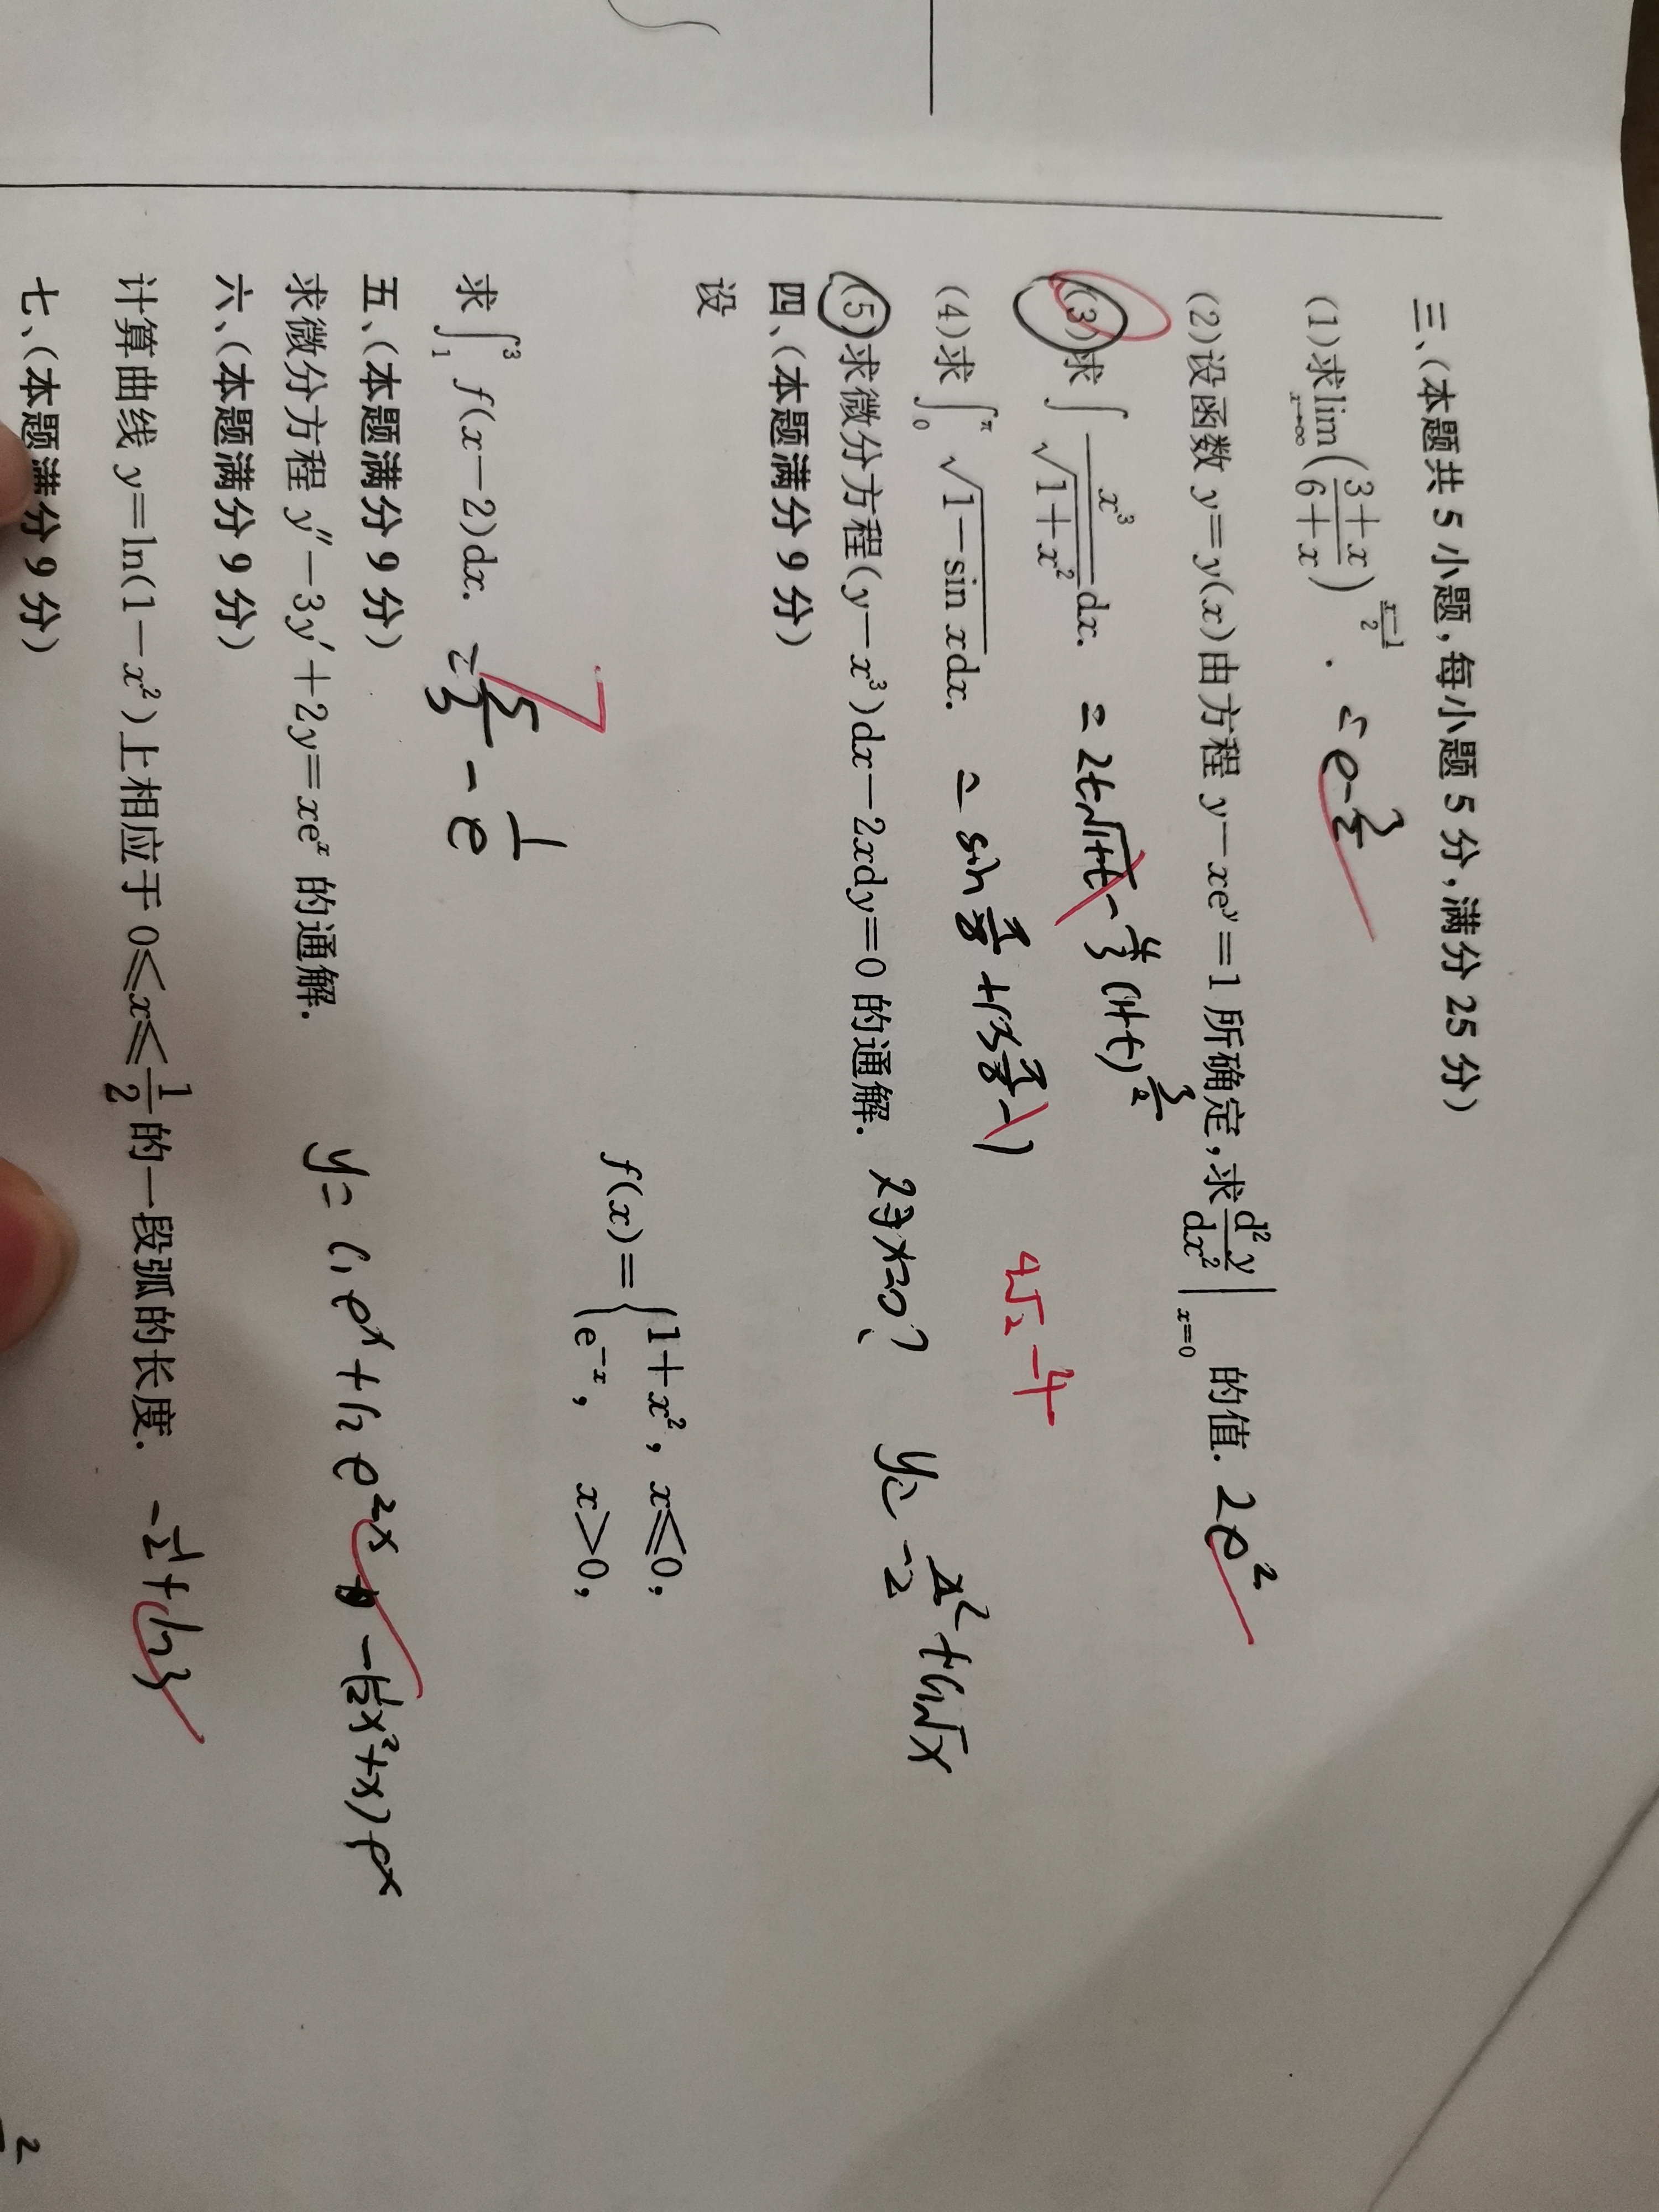 三、(本题共 5 小题,每小题 5 分,满分 25 分)
(1)求 lim x→∞ ((3+x)/(6+x))^((x-1)/2). = e^(-3/2)
(2)设函数 y=y(x)由方程 y-xe^y=1 所确定,求 d²y/dx² |x=0 的值. 2e²
(3)求 ∫ x³/√(1+x²) dx. = 2t√(1+t) - 4/3 (1+t)^(3/2)
(4)求 ∫₀^π √(1-sin x)dx.
4√2 - 4
(5)求微分方程(y-x³)dx-2xdy=0 的通解.
四、(本题满分 9 分)
设
f(x)={1+x², x≤0,
e^(-x), x>0,
求 ∫₁³ f(x-2)dx. = 5/3 - 1/e
五、(本题满分 9 分)
求微分方程 y″-3y′+2y=xe^x 的通解.
六、(本题满分 9 分)
计算曲线 y=ln(1-x²)上相应于 0≤x≤1/2 的一段弧的长度. -1/2+ln3
七、(本题满分 9 分)